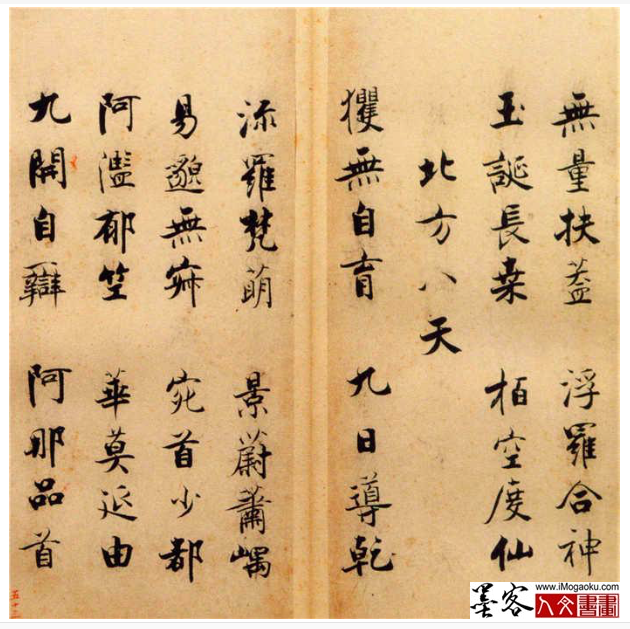 無量扶蓋 浮羅合神
玉誕長桒 柏空度仙
北方八天
玃無自育 九日導乾
流羅梵萌 景蔚蕭嵎
易邈無寂 宛首少都
阿濫郁竺 華莫延由
九開自辯 阿那品首
五十三
墨客
www.iMogaoku.com
人文書畫